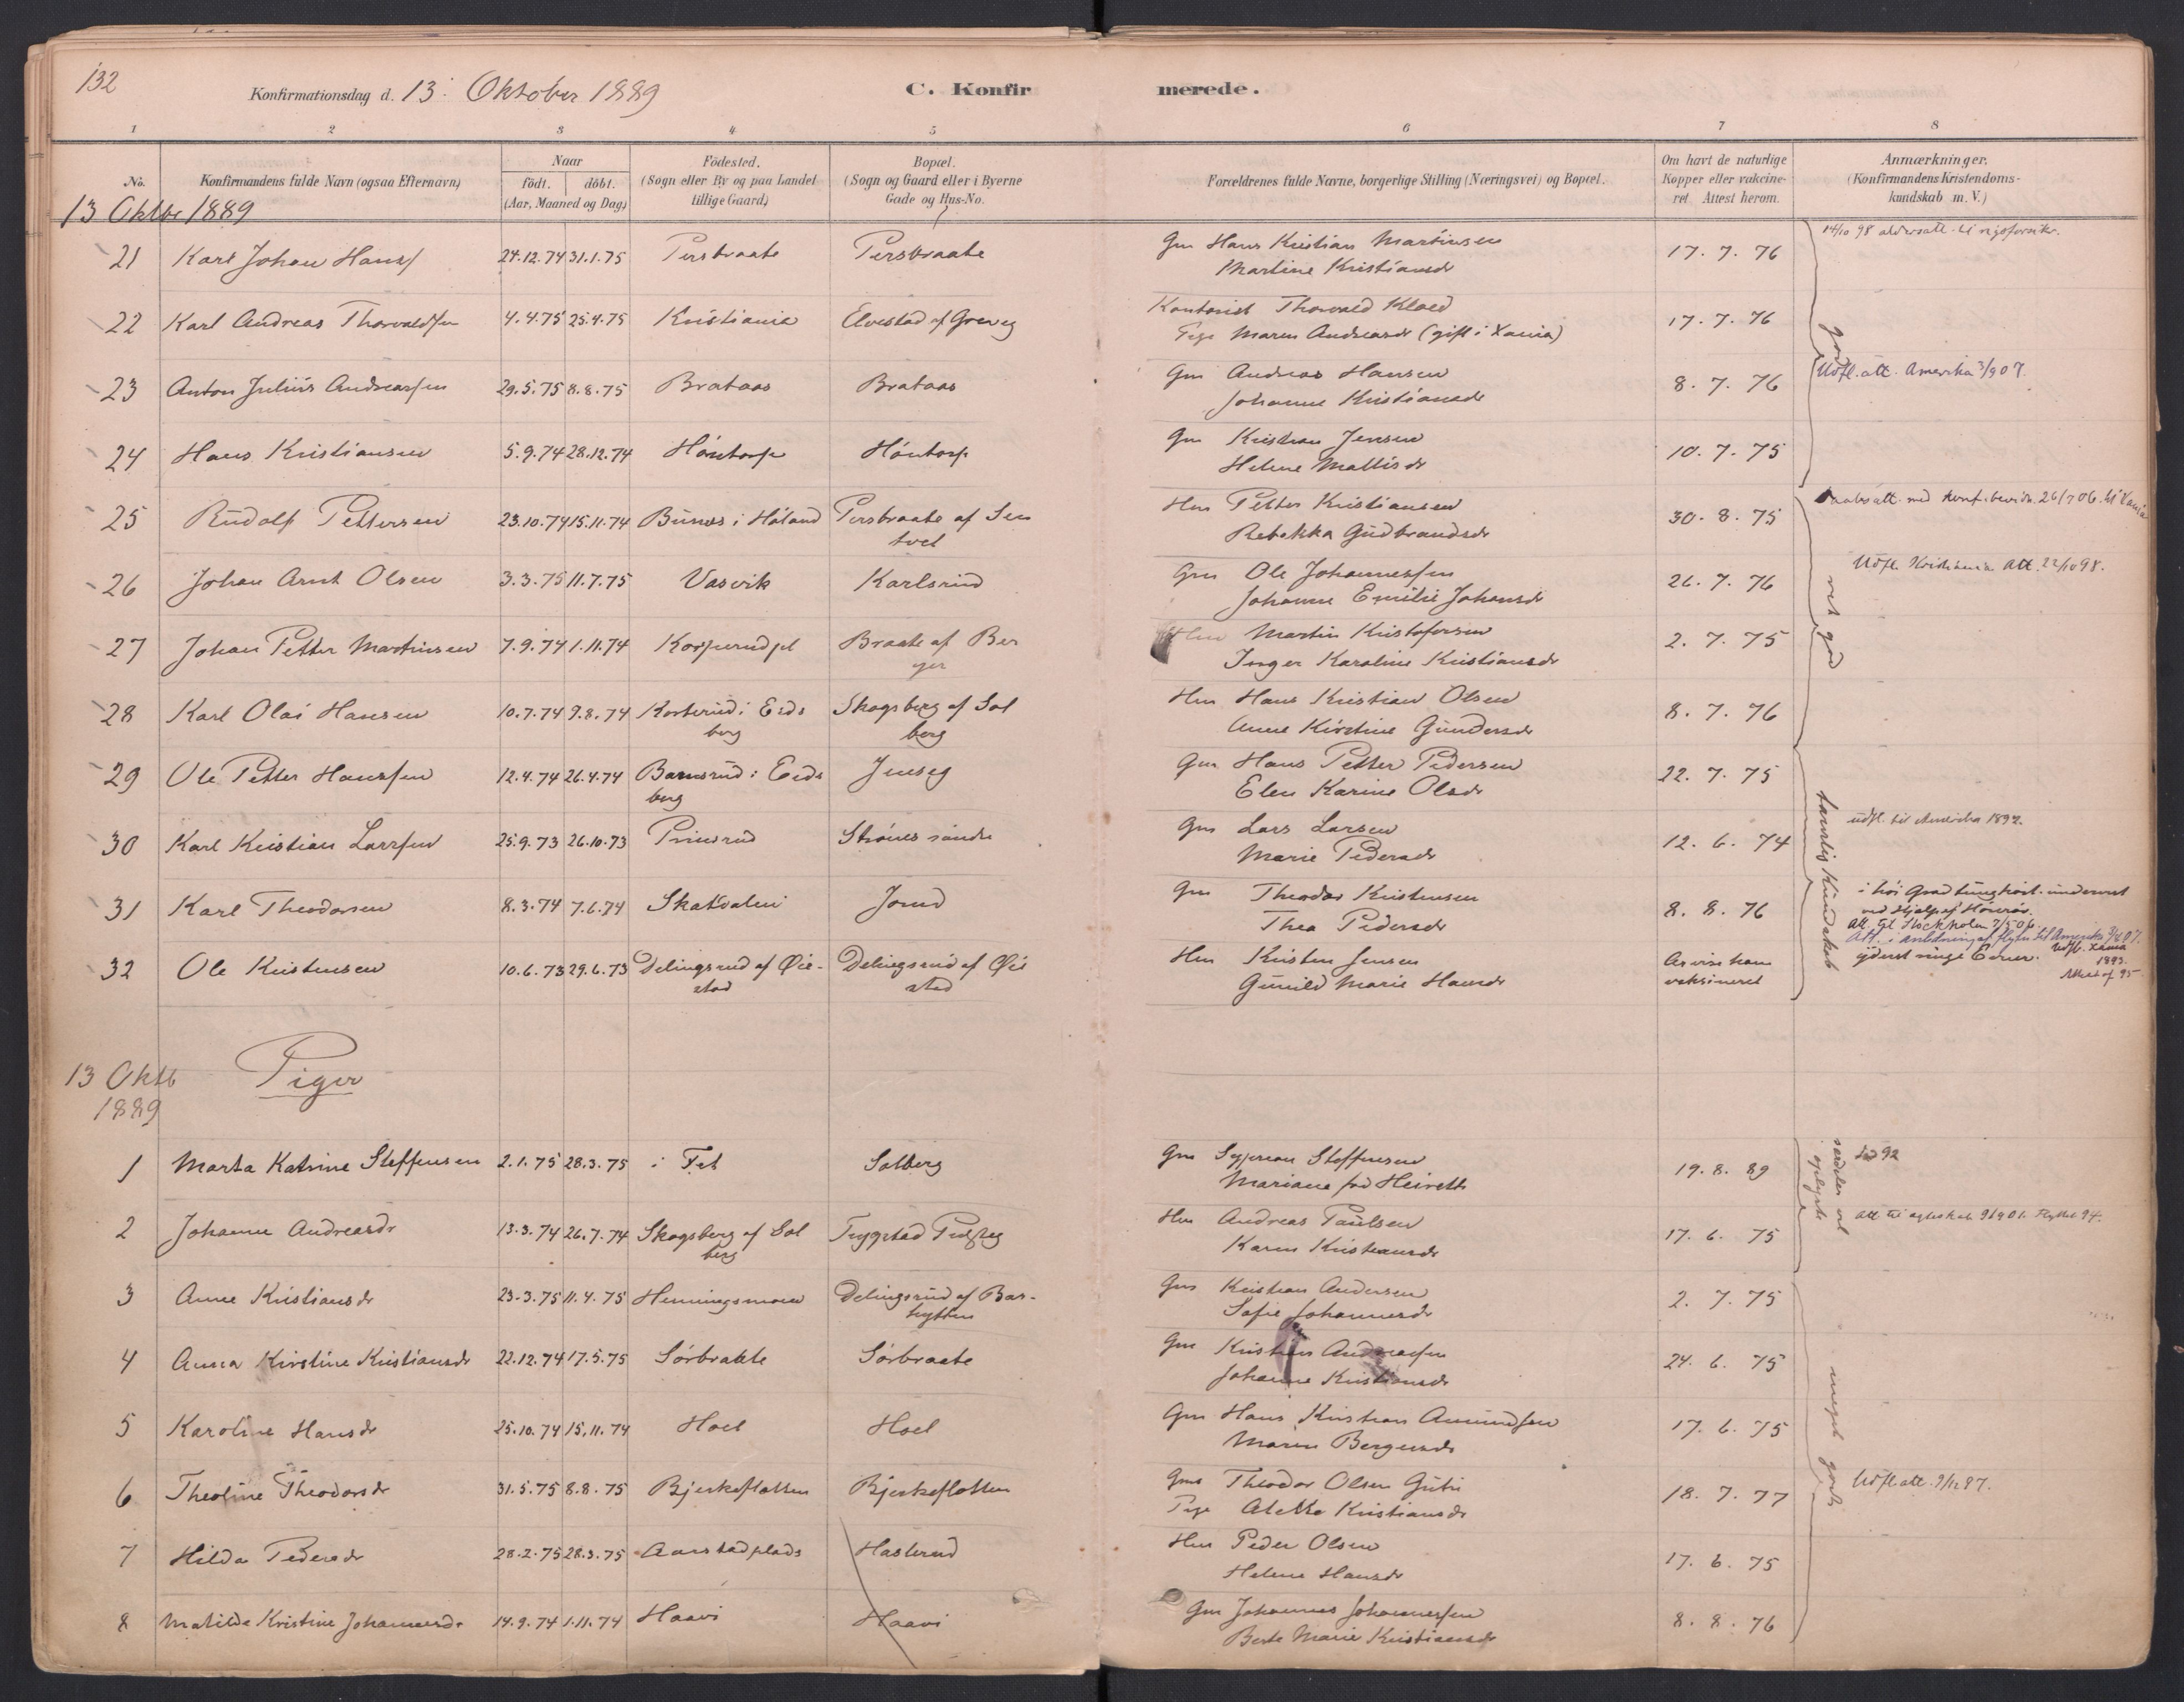 132
Konfirmationsdag d. 13. Oktober 1889
C. Konfirmerede.
1 2 3 4 5 6 7 8
No.
Konfirmandens fulde Navn (ogsaa Efternavn)
Naar
født. døbt.
(Aar, Maaned og Dag)
Fødested.
(Sogn eller By og paa Landet
tillige Gaard)
Bopæl.
(Sogn og Gaard eller i Byerne
Gade og Hus-No.
Forældrenes fulde Navne, borgerlige Stilling (Næringsvei) og Bopæl.
Om havt de naturlige
Kopper eller vakcine-
ret. Attest herom.
Anmærkninger.
(Konfirmandens Kristendoms-
kundskab m. V.)
13 Oktbr 1889
21 Karl Johan Hans 24.12.74 31.1.75 Persbraate Persbraate Gm Hans Kristian Martinsen 17.7.76
Martine Kristiansdr
22 Karl Andreas Thorvaldsen 4.4.75 25.4.75 Kristiania Elvestad af Greveg Kontorist Thorvald Kloed 17.7.76
Pige Maren Andreasdr (gift i Xania)
god
23 Anton Julius Andreassen 29.5.75 8.8.75 Brataas Brataas Gm Andreas Hansen 8.7.76 Udfl. att. Amerika 3/9 07.
Johanne Kristiansdr
24 Hans Kristiansen 5.9.74 28.12.74 Høntorp Høntorp Gm Kristian Jensen 10.7.75
Helene Mattisdr
25 Rudolf Pettersen 23.10.74 15.11.74 Bunes i Høland Persbraate af Sen Hm Petter Kristiansen 30.8.75 Daabsatt. med konf.bevidn. 26/7 06. til Xania
tvet
Rebekka Gudbrandsdr
26 Johan Arnt Olsen 3.3.75 11.7.75 Vasvik Karlsrud Gm Ole Johannessen 26.7.76 Udfl. Kristiania Att. 22/10 98.
Johanne Emilie Johansdr
ret god
27 Johan Petter Martinsen 7.9.74 1.11.74 Korperudpl Braate af Ber Hm Martin Kristofersen 2.7.75
ger
Inger Karoline Kristiansdr
28 Karl Olai Hansen 10.7.74 9.8.74 Korterud i Eids Skogsberg af Sol Hm Hans Kristian Olsen 8.7.76
berg berg
Anne Kirstine Gundersdr
29 Ole Petter Hanssen 12.4.74 26.4.74 Barnsrud i Eids Jenseg Gm Hans Petter Pedersen 22.7.75
berg
Elen Karine Olsdr
30 Karl Kristian Larssen 25.9.73 26.10.73 Prinsrud Strønes søndre Gm Lars Larsen 12.6.74 udfl. til Amerika 1892.
Marie Pedersdr
taarelig Kundskab
31 Karl Theodorsen 8.3.74 7.6.74 Skatdalen Jorud Gm Theodor Kristensen 8.8.76 i høi Grad tunghørt. undervist
ved Hjelp af Hørerør.
Thea Pedersdr
Att. til Stockholm 7/5 06.
Att. i anledning af flytn. til Amerika 3/4 07.
32 Ole Kristensen 10.6.73 29.6.73 Delingsrud af Øie- Delingsrud af Øie Hm Kristen Jensen Arvise ham yderst ringe Evner. Udfl. Xania
stad stad
1893.
Gunild Marie Hansdr vaksineret Attest af 95
13 Oktb Piger
1889
1 Marta Katrine Steffensen 2.1.75 28.3.75 i Fet Solberg Gm Syverson Steffensen 19.8.89
Mariane fød Heinrett
særdeles vel oplyste
2 Johanne Andreasdr 13.3.74 26.7.74 Skogsberg af Sol Trygstad Prestg Hm Andreas Paulsen 17.6.75
berg
Karen Kristiansdr
3 Anne Kristiansdr 23.3.75 11.4.75 Henningsmoen Delingsrud af Bar- Gm Kristian Andersen 2.7.75
hytten
Sofie Johannesdr
4 Anna Kirstine Kristiansdr 22.12.74 17.5.75 Sørbraate Sørbraate Gm Kristian Andreassen 24.6.75
Johanne Kristiansdr
meget gode
5 Karoline Hansdr 25.10.74 15.11.74 Hoel Hoel Gm Hans Kristian Amundsen 17.6.75
Maren Bergersdr
6 Theoline Theodorsdr 31.5.75 8.8.75 Bjerkeflotten Bjerkeflotten Gms Theodor Olsen Gutu 18.7.77 Udfl. att. 9/12 97.
Pige Alette Kristiansdr
7 Hilda Pedersdr 28.2.75 28.3.75 Aarstadplads Haslerud Hm Peder Olsen 17.6.75
Helene Hansdr
8 Matilde Kristine Johannesdr 14.9.74 1.11.74 Haavi Haavi Gm Johannes Johannessen 8.8.76
Berte Marie Kristiansdr